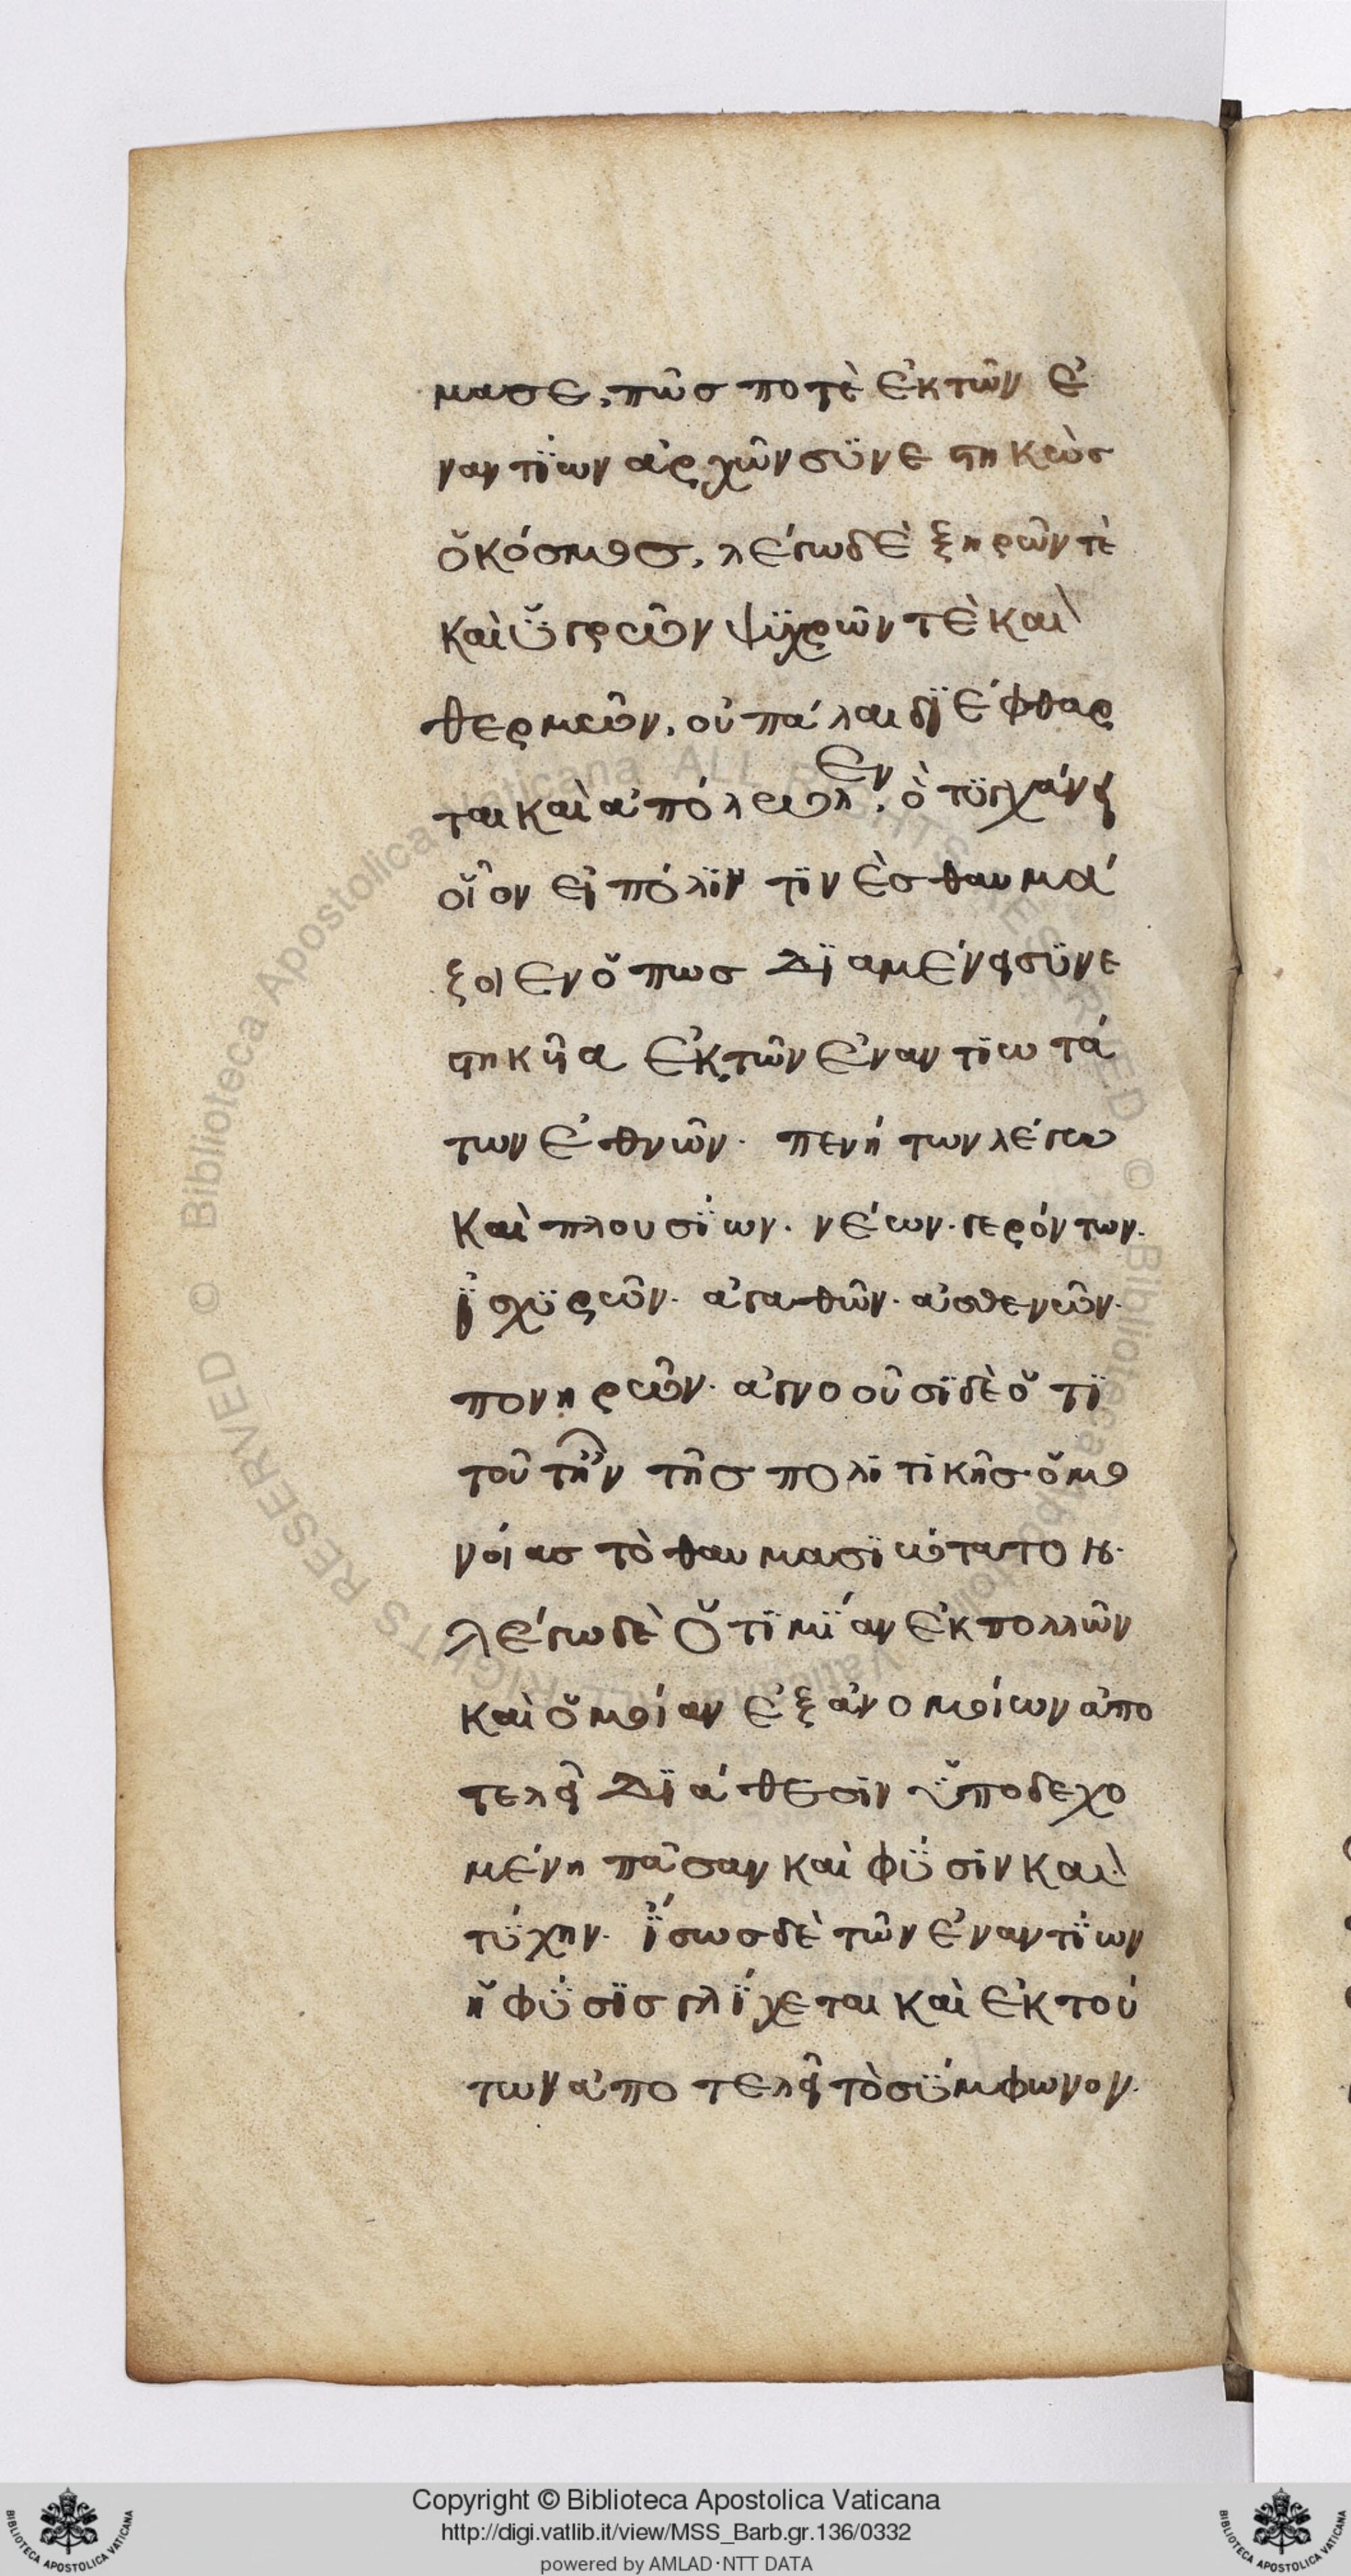 μασε, πῶσ ποτὲ ἐκ τῶν ἐ
ναντΐων ἀρχῶν συνεστηκὼσ
ὁ κόσμοσ, λέγω δὲ ξηρῶν τὲ
καὶ ὑγρῶν ψϋχρῶν τὲ καὶ
θερμῶν, οὐ πάλαι δϊέφθαρ
ται καὶ ἀπόλωλεν, ὃ τϋγχάνει
οἷον εἰ πόλϊν τϊνὲσ θαυμά
ζοιεν ὅπωσ Δϊαμένει σϋνε
στηκῆα ἐκ τῶν ἐναντϊωτά
των ἐθνῶν· πενήτων λέγω
καὶ πλουσΐων· νέων· γερόντων·
ἰσχϋρῶν· ἀγαθῶν· ἀσθενῶν·
πονηρῶν· ἀγνοοῦσϊ δὲ ὅτϊ
τοῦτ ἦν τῆσ πολϊτικῆσ ὁμο
νοίασ τὸ θαυμασϊώτατον·
λέγω δὲ ὅτϊ μΐαν ἐκ πολλῶν
καὶ ὁμοίαν ἐξ ἀνομοίων ἀπο
τελεῖ Δϊάθεσϊν ὑποδεχο
μένη πᾶσαν καὶ φΰσϊν καὶ
τΰχην· ἴσωσ δὲ τῶν ἐναντΐων
ἡ φΰσϊσ γλΐχεται καὶ ἐκ τού
των ἀποτελεῖ τὸ σΰμφωνον·
Copyright © Biblioteca Apostolica Vaticana
http://digi.vatlib.it/view/MSS_Barb.gr.136/0332
powered by AMLAD·NTT DATA